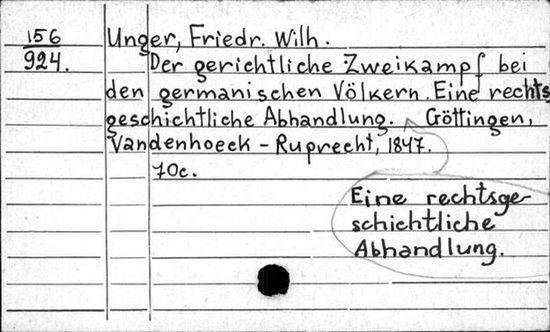 156
924.
Unger, Friedr. Wilh.
Der gerichtliche Zweikampf bei
den germanischen Völkern. Eine rechts
geschichtliche Abhandlung. Göttingen,
Vandenhoeck - Ruprecht, 1847.
70c.
Eine rechtsge-
schichtliche
Abhandlung.